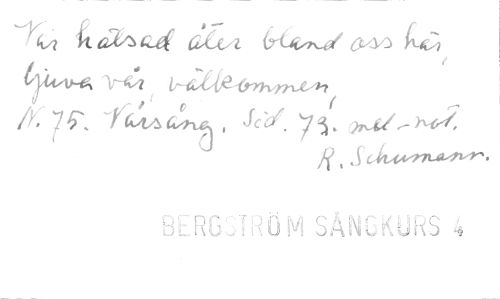 Var hälsad åter bland oss här,
ljuva vår, välkommen,
N. 75. Vårsång. Sid. 73. mel-not.
R. Schumann.
BERGSTRÖM SÅNGKURS 4